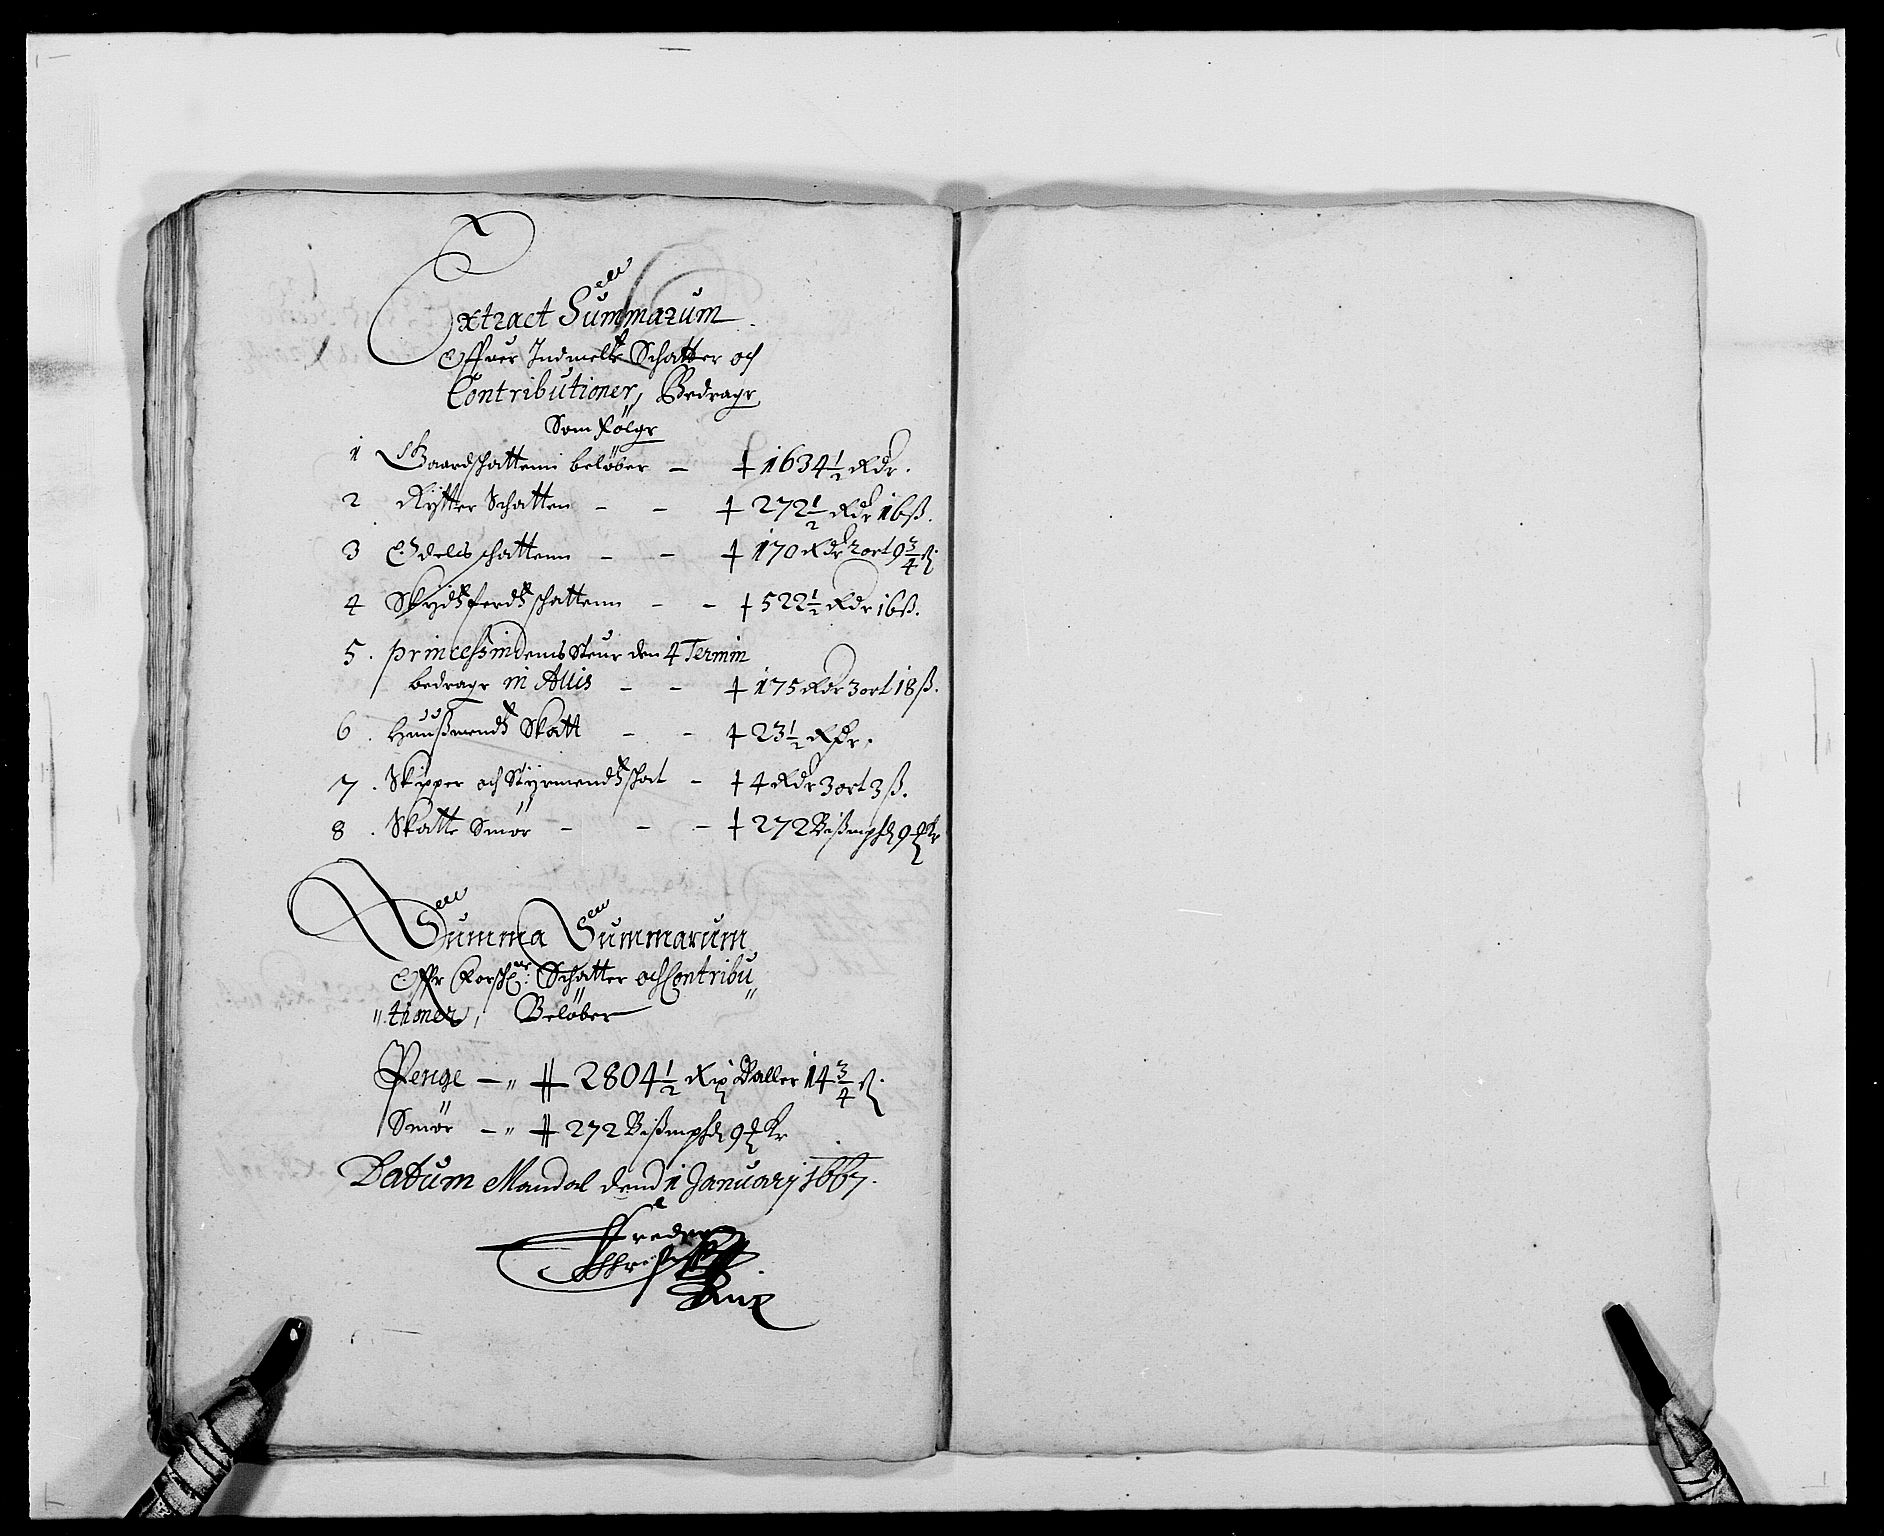 Extract Summarum
Offuer Indmelte Schatter och
Contributioner, Bedragr
Som Fölgr
1 Gaardschattenn belöber – 1634½ Rdr.
2 Rytter Schatten – – 272½ Rdr 16 ß.
3 Odels schattenn – – 170 Rdr 2 ort 9¾ ß
4 Skydtzferdtz schattenn – – 522½ Rdr 16 ß.
5. princessindens Steur den 4 Termin
bedragr in Allis – – 175 Rdr 3 ort 18 ß.
6. Huußmendtz Skatt – – 23½ Rdr.
7. Skipper och Styrmendtz schat – 4 Rdr 3 ort 3 ß.
8. Skatte Smör – – – 272 Bißmpd 9
Summa Summarum
Offr Forschr: Schatter och Contribu„
„tioner, Belöber
Penge – „ 2804½ Rix Daller 14¾ ß.
Smör – „ 272 Bißmpd 9
Datum Mandal dend 1 January 1667.